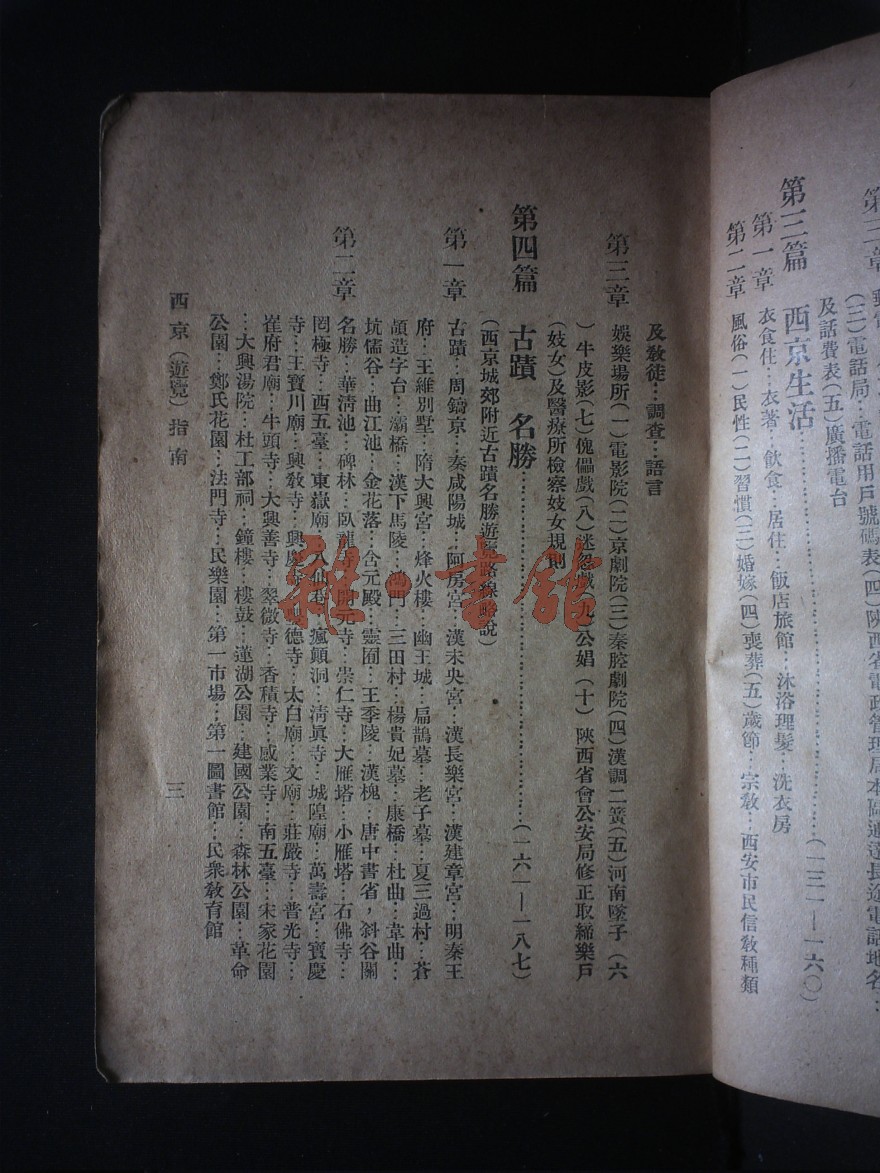 (三)電話局…電話用戶號碼表(四)陝西省電政管理局本區通達長途電話地名…
及話費表(五)廣播電台
第三篇 西京生活……(一三一—一六〇)
第一章 衣食住…衣著…飲食…居住…飯店旅館…沐浴理髮…洗衣房
第二章 風俗(一)民性(二)習慣(三)婚嫁(四)喪葬(五)歲節…宗教…西安市民信教種類
及教徒…調查…語言
第三章 娛樂場所(一)電影院(二)京劇院(三)秦腔劇院(四)漢調二簧(五)河南墜子(六
)牛皮影(七)傀儡戲(八)迷忽戲(九)公娼(十)陝西省會公安局修正取締樂戶
(妓女)及醫療所檢察妓女規則
第四篇 古蹟 名勝……(一六一—一八七)
(西京城郊附近古蹟名勝遊覽路線略說)
第一章 古蹟…周鎬京…秦咸陽城…阿房宮…漢未央宮…漢長樂宮…漢建章宮…明秦王
府…王維別墅…隋大興宮…烽火樓…幽王城…扁鵲墓…老子墓…夏三過村…蒼
頡造字台…灞橋…漢下馬陵…鴻門…三田村…楊貴妃墓…康橋…杜曲…韋曲…
坑儒谷…曲江池…金花落…含元殿…靈囿…王季陵…漢槐…唐中書省,斜谷關
第二章 名勝…華清池…碑林…臥龍寺…開元寺…崇仁寺…大雁塔…小雁塔…石佛寺…
罔極寺…西五臺…東嶽廟…八仙菴…瘋顛洞…清眞寺…城隍廟…萬壽宮…寶慶
寺…王寶川廟…興教寺…興慶寺…德寺…太白廟…文廟…莊嚴寺…普光寺…
崔府君廟…牛頭寺…大興善寺…翠微寺…香積寺…感業寺…南五臺…宋家花園
…大興湯院…杜工部祠…鐘樓…樓鼓…蓮湖公園…建國公園…森林公園…革命
公園…鄭氏花園…法門寺…民樂園…第一市場…第一圖書館…民衆教育館
西京(遊覽)指南
三
雅·書館